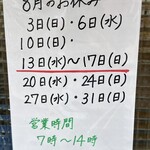 8月のお休み
3日(日)・6日(水)
10日(日)・
13日(水)〜17日(日)
20日(水)・24日(日)
27日(水)・31日(日)
営業時間
7時〜14時